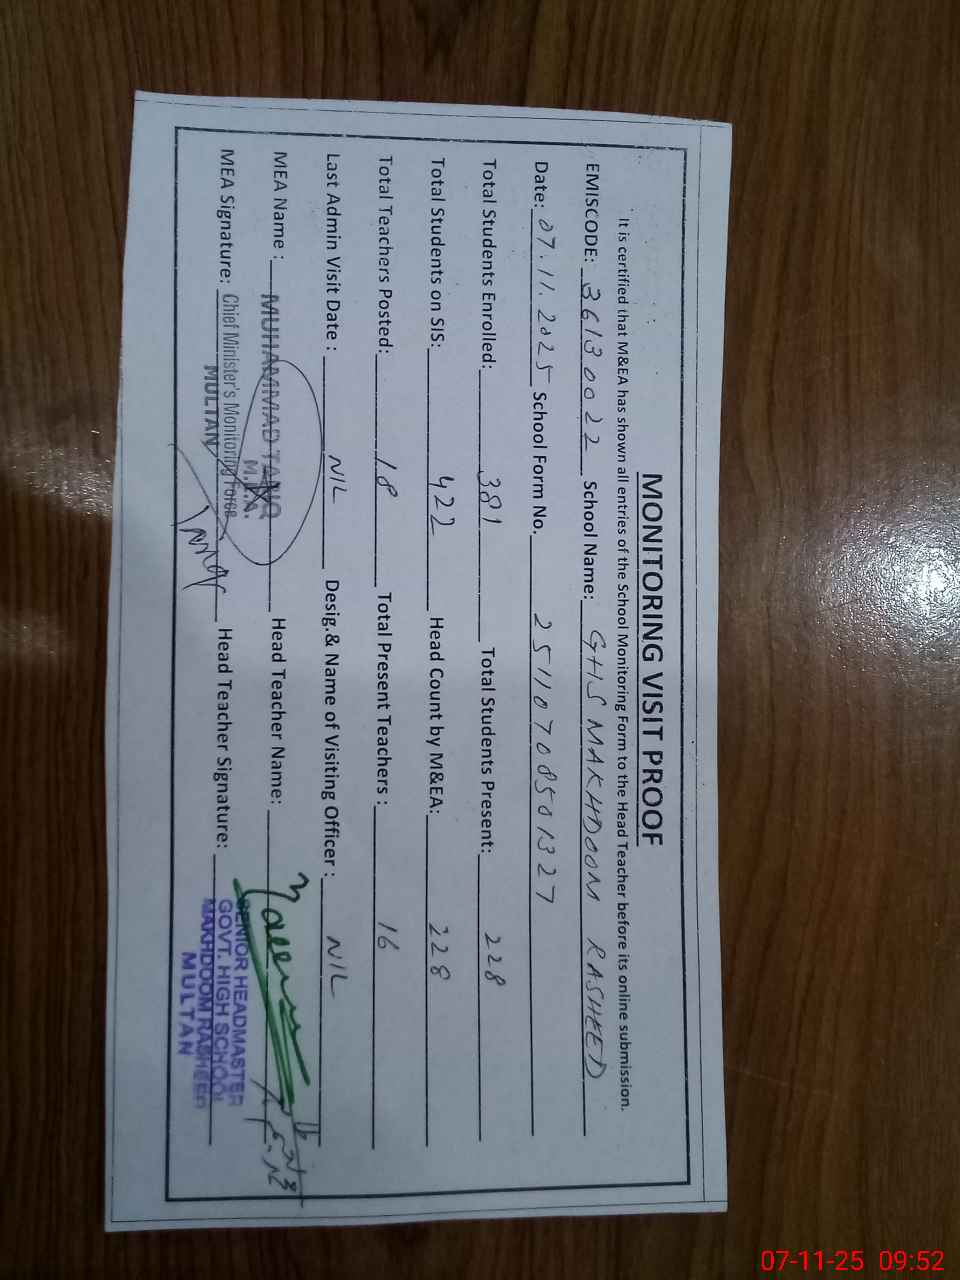 MONITORING VISIT PROOF
It is certified that M&EA has shown all entries of the School Monitoring Form to the Head Teacher before its online submission.
EMISCODE: 36130022 School Name: GHS MAKHDOOM RASHEED
Date: 07.11.2025 School Form No. 25110708501327
Total Students Enrolled: 381 Total Students Present: 228
Total Students on SIS: 422 Head Count by M&EA: 228
Total Teachers Posted: 18 Total Present Teachers : 16
Last Admin Visit Date : NIL Desig.& Name of Visiting Officer : NIL
MEA Name : MUHAMMAD TARIQ Head Teacher Name:
M.E.A.
MEA Signature: Chief Minister's Monitoring Force Head Teacher Signature:
MULTAN
SENIOR HEADMASTER
GOVT. HIGH SCHOOL
MAKHDOOM RASHEED
MULTAN
07-11-25 09:52